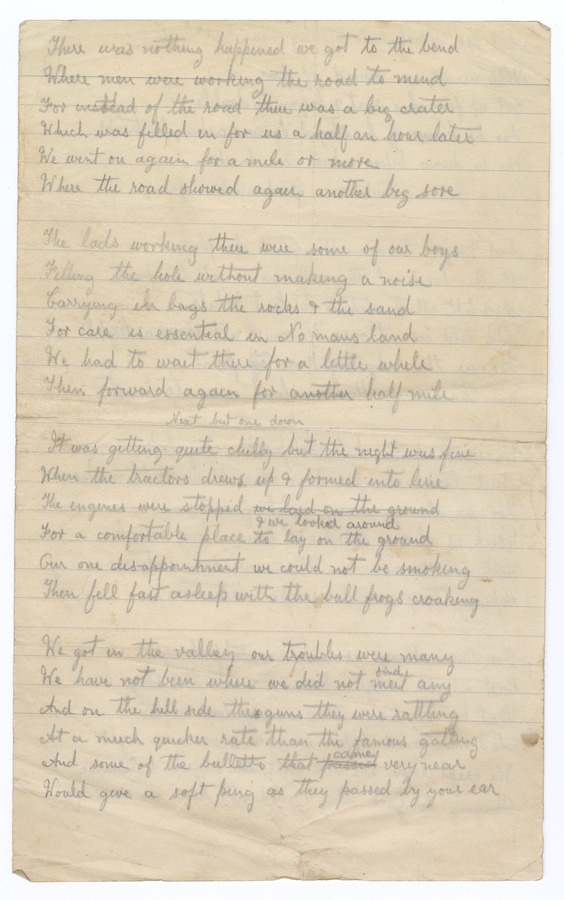 There was nothing happened we got to the bend
Where men were working the road to mend
For instead of the road there was a big crater
Which was filled in for us a half an hour later
We went on again for a mile or more
Where the road showed again another big sore
The lads working there were some of our boys
Filling the hole without making a noise
Carrying in bags the rocks & the sand
For care is essential in No mans land
We had to wait there for a little while
Then forward again for another half mile
Next but one down
It was getting quite chilly but the night was fine
When the tractors drew up & formed into line
The engines were stopped we layed on the ground
& we looked around
For a comfortable place to lay on the ground
Our one disappointment we could not be smoking
Then fell fast asleep with the bull frogs croaking
We got in the valley our troubles were many
find
We have not been where we did not meet any
And on the hill side the guns they were rattling
At a much quicker rate than the famous gatling
came
And some of the bullets that passed very near
Would give a soft ping as they passed by your ear